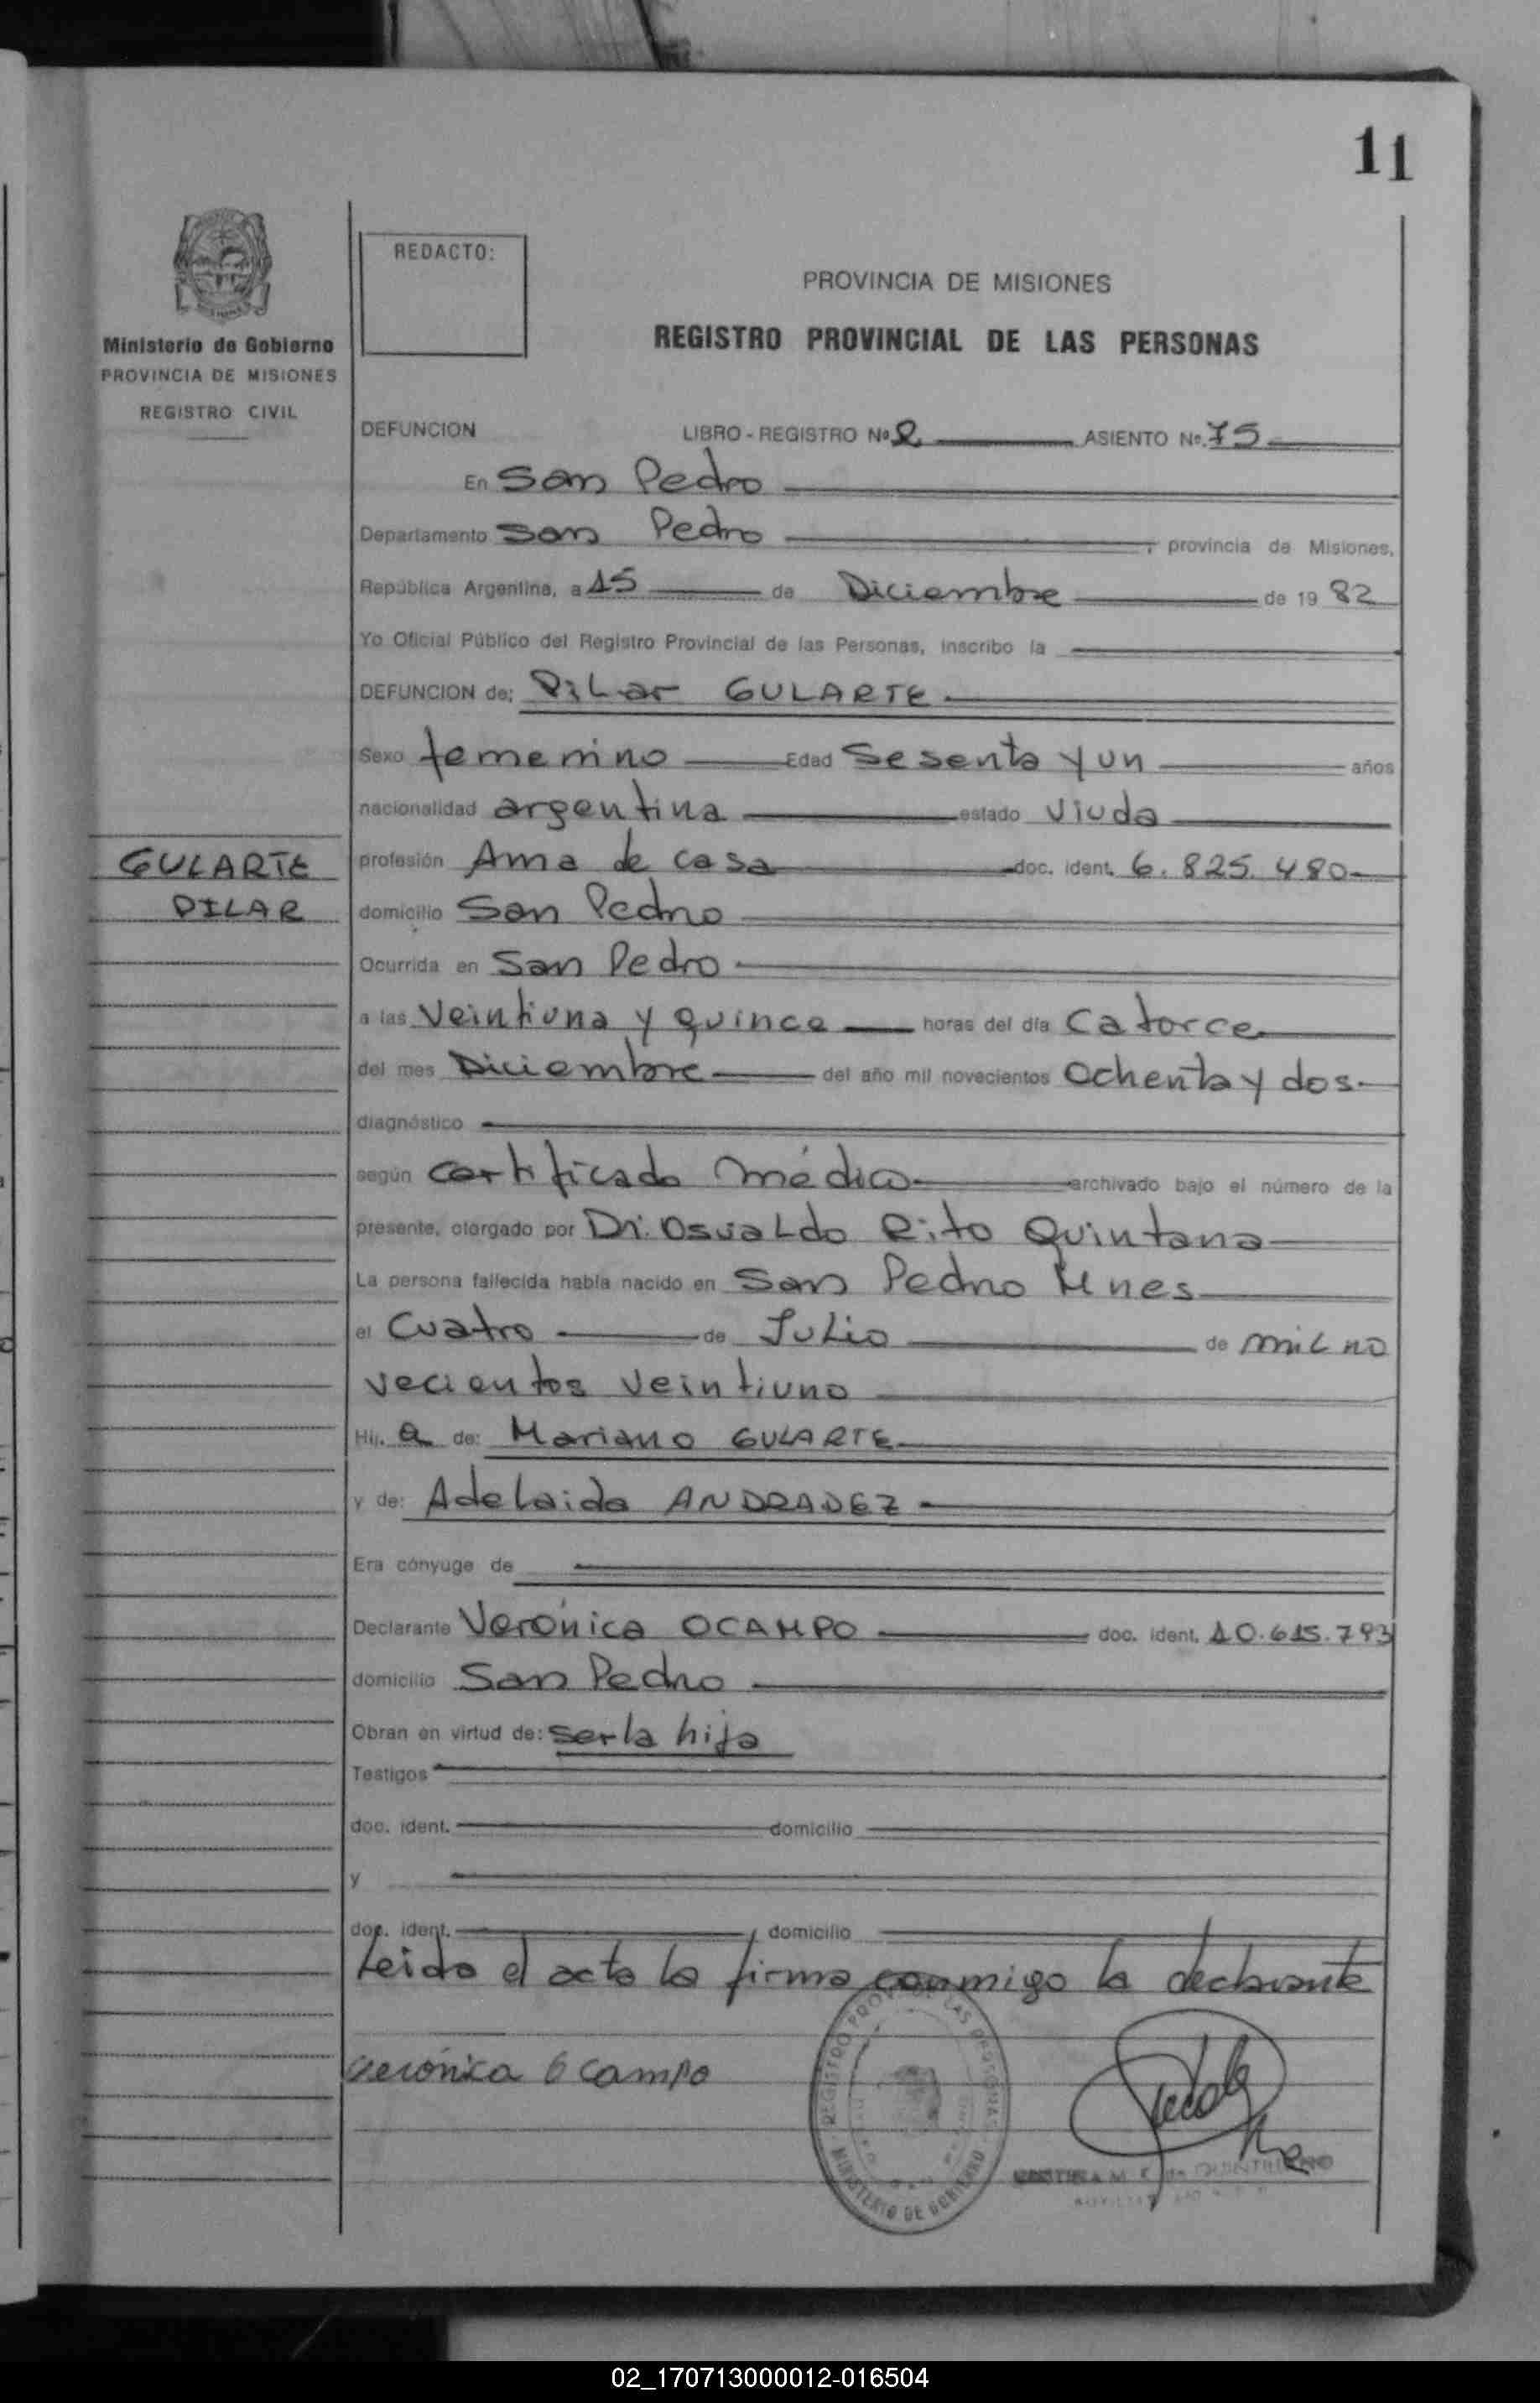 11
REDACTO:
PROVINCIA DE MISIONES
REGISTRO PROVINCIAL DE LAS PERSONAS
Ministerio de Gobierno
PROVINCIA DE MISIONES
REGISTRO CIVIL
DEFUNCION LIBRO - REGISTRO Nº 2 ASIENTO Nº. 75
En San Pedro
Departamento San Pedro, provincia de Misiones,
República Argentina, a 15 de Diciembre de 19 82
Yo Oficial Público del Registro Provincial de las Personas, inscribo la
DEFUNCION de: Pilar GULARTE
Sexo femenino Edad Sesenta y un años
nacionalidad argentina estado Viuda
GULARTE
PILAR
profesión Ama de casa doc. ident. 6.825.480
domicilio San Pedro
Ocurrida en San Pedro
a las Veintiuna y quince horas del día Catorce
del mes Diciembre del año mil novecientos Ochenta y dos.
diagnóstico
según certificado médico archivado bajo el número de la
presente, otorgado por Dr. Osvaldo Rito Quintana
La persona fallecida había nacido en San Pedro Mnes
el Cuatro de Julio de mil no
vecientos veintiuno
Hij. a de: Mariano GULARTE
y de: Adelaida ANDRADEZ
Era cónyuge de
Declarante Verónica OCAMPO doc. ident. 10.615.793
domicilio San Pedro
Obran en virtud de: ser la hija
Testigos
doc. ident. domicilio
y
doc. ident. domicilio
Leida el acta la firma conmigo la declarante
Verónica Ocampo
REGISTRO PROV. DE LAS PERSONAS
MINISTERIO DE GOBIERNO
02_170713000012-016504